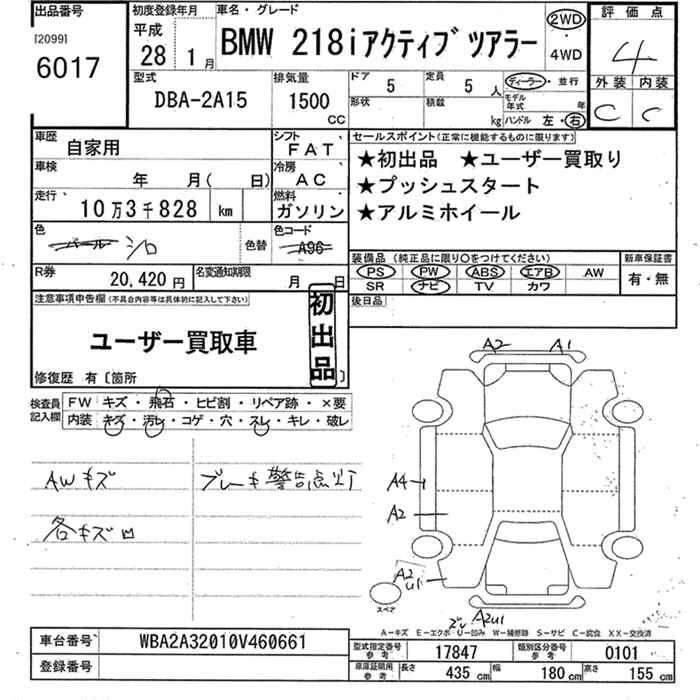 出品番号 初度登録年月 車名・グレード 評価点
[2099] 平成 2WD
6017 28 1月 BMW 218iアクティブツアラー ・4WD 4
型式 排気量 ドア 定員 ディーラー・並行 外装 内装
DBA-2A15 1500 CC 5 5人 モデル年式 年 C C
形状 積載 kg ハンドル 左・右
車歴 自家用 シフト FAT セールスポイント(正常に機能するものに限ります)
車検 年 月( 日) 冷房 AC ★初出品 ★ユーザー買取り
走行 10万3千828 km 燃料 ガソリン ★プッシュスタート
★アルミホイール
色 パール シロ 色替 色コード A96
装備品(純正品に限り○をつけてください) 新車保証書
R券 20,420円 名変通知期限 月 日 PS PW ABS エアB AW 有・無
SR ナビ TV カワ
注意事項申告欄(不具合内容等は具体的に記入して下さい) 初出品 後日品
ユーザー買取車
修復歴 有〔箇所 〕
検査員記入欄 FW キズ・飛石・ヒビ割・リペア跡・×要
内装 キズ・汚レ・コゲ・穴・スレ・キレ・破レ
A2 A1
AWキズ ブレーキ警告点灯
A4
A2
各キズ凹
A2
U1
スペア
A2U1
A-キズ E-エクボ U-凹み W-補修跡 S-サビ C-腐食 XX-交換済
車台番号 WBA2A32010V460661 型式指定番号 参考 17847 類別区分番号 参考 0101
登録番号 車庫証明用 参考 長さ 435cm 幅 180cm 高さ 155cm